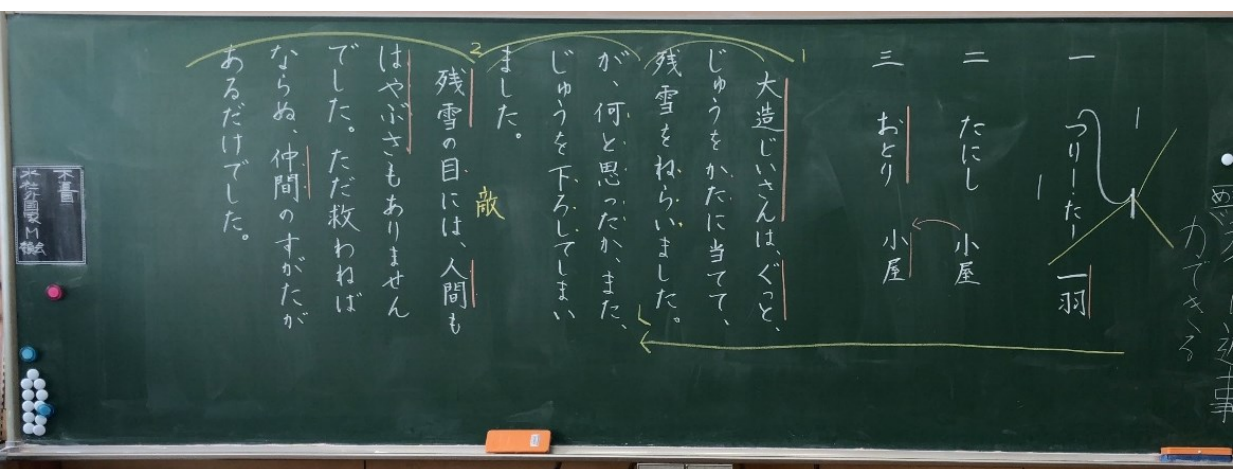 力できる
一 つりばり 一羽
二 たにし 小屋
三 おとり 小屋
1
大造じいさんは、ぐっと、
じゅうをかたに当てて、
残雪をねらいました。
が、何と思ったか、また、
じゅうを下ろしてしまい
ました。
2
敵
残雪の目には、人間も
はやぶさもありません
でした。ただ救わねば
ならぬ、仲間のすがたが
あるだけでした。